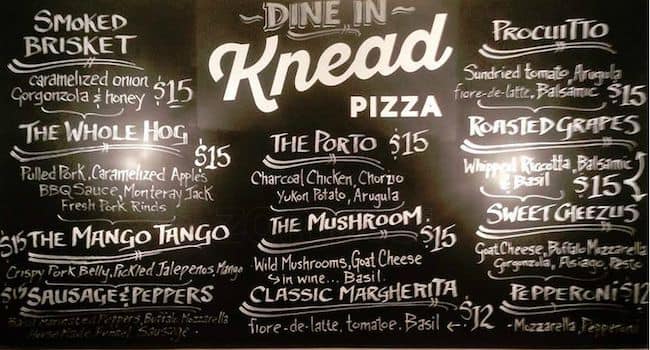 SMOKED
BRISKET
caramelized onion
Gorgonzola & honey $15
THE WHOLE HOG
$15
Pulled Pork, Caramelized Apples
BBQ Sauce, Monteray Jack
Fresh Pork Rinds
$15 THE MANGO TANGO
Crispy Pork Belly, Pickled Jalepeños, Mango
$15 SAUSAGE & PEPPERS
Basil Marinated Peppers, Buffalo Mozzarella
House Made Fennel Sausage
DINE IN
Knead
PIZZA
THE PORTO $15
Charcoal Chicken, Chorzio
Yukon Potato, Arugula
THE MUSHROOM
$15
Wild Mushrooms, Goat Cheese
in wine... Basil
CLASSIC MARGHERITA
$12
fiore-de-latte, tomatoe, Basil
PROCUITTO
Sundried tomato, Arugula
fiore-de-latte, Balsamic $15
ROASTED GRAPES
Whipped Riccotta, Balsamic
& Basil $15
SWEET CHEEZUS
Goat Cheese, Buffalo Mozzarella
Gorgonzola, Asiago, Pesto
PEPPERONI $12
- Mozzarella, Pepperoni